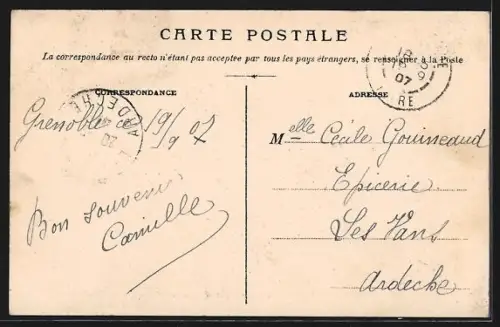 CARTE POSTALE
La correspondance au recto n'étant pas acceptée par tous les pays étrangers, se renseigner à la Poste
CORRESPONDANCE
ADRESSE
ARDECHE
07
Grenoble ce 19/9 07
Bon souvenir
Camille
Melle Cécile Gouineaud
Epicerie
Les Vans
Ardèche